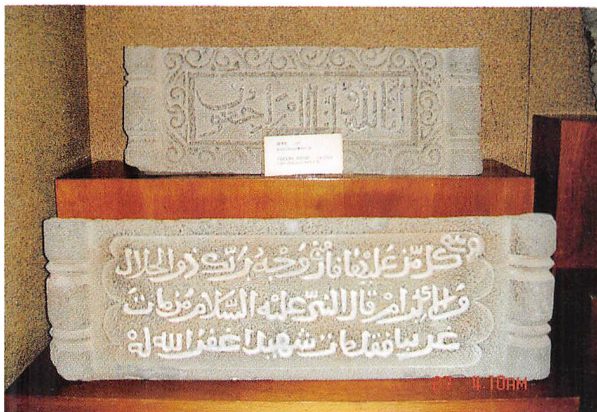 انا لله وانا اليه راجعون
كل من عليها فان وجه ربك ذو الجلال
والاكرام قال النبي عليه السلام من مات
غريبا فقد مات شهيدا غفر الله له
4:10AM